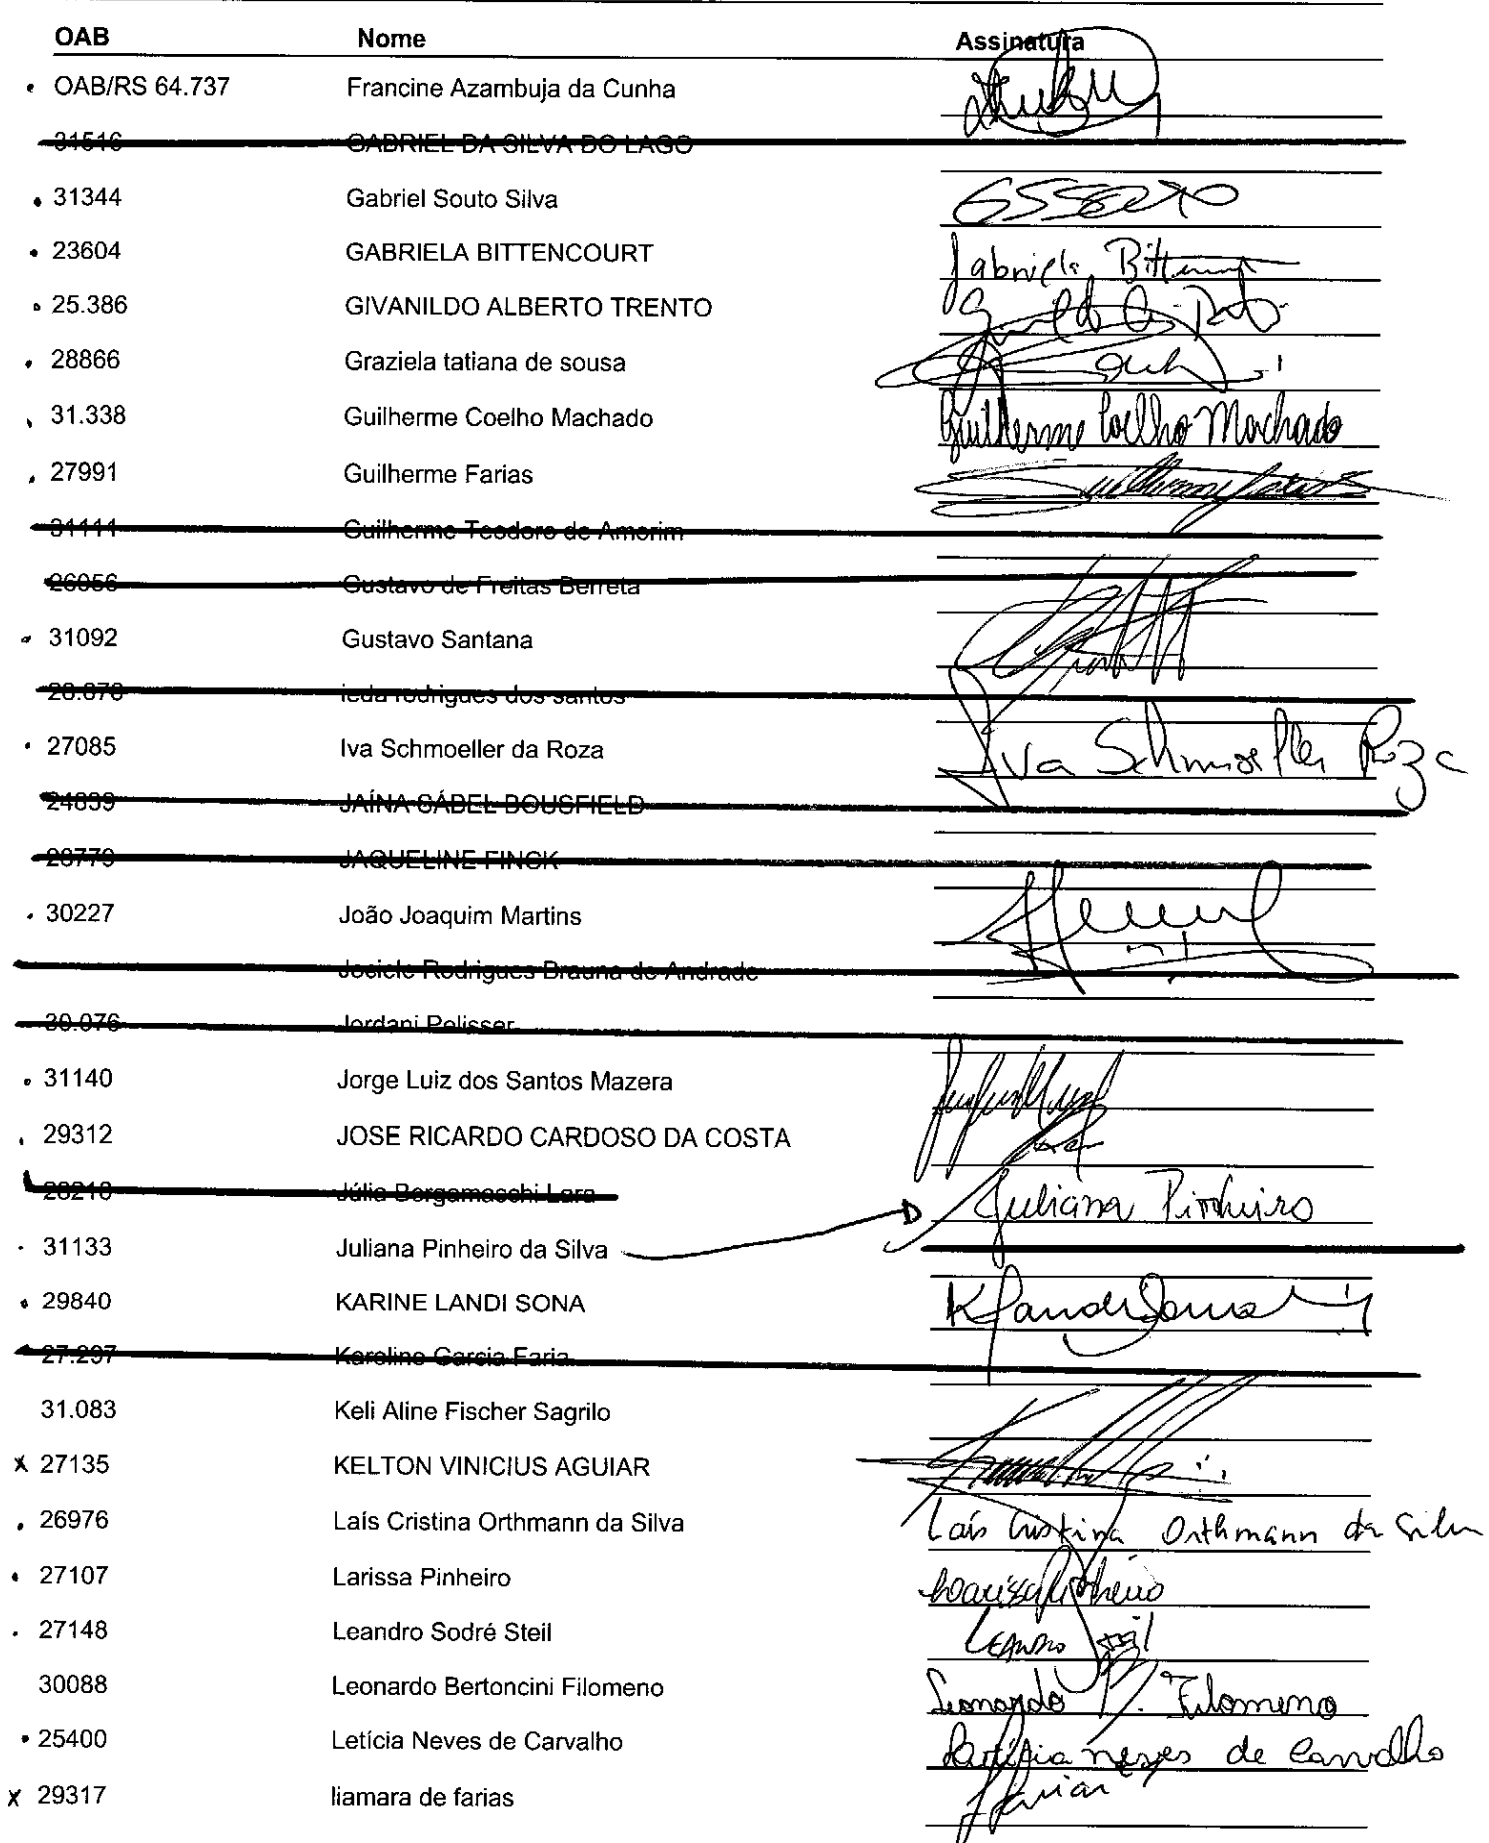 OAB Nome Assinatura
OAB/RS 64.737 Francine Azambuja da Cunha
31516 GABRIEL DA SILVA DO LAGO
31344 Gabriel Souto Silva
23604 GABRIELA BITTENCOURT Gabriela
25.386 GIVANILDO ALBERTO TRENTO
28866 Graziela tatiana de sousa
31.338 Guilherme Coelho Machado Guilherme Coelho Machado
27991 Guilherme Farias Guilherme Farias
31111 Guilherme Teodoro de Amorim
26056 Gustavo de Freitas Berreta
31092 Gustavo Santana
ieda rodrigues dos santos
27085 Iva Schmoeller da Roza Iva Schmoeller Roza
24839 JAÍNA SÁBEL BOUSFIELD
28779 JAQUELINE FINCK
30227 João Joaquim Martins
Rodrigues Brauna de Andrade
30.076 Jordani Pelisser
31140 Jorge Luiz dos Santos Mazera
29312 JOSE RICARDO CARDOSO DA COSTA
28218 Bergamaschi Lara Juliana Pinheiro
31133 Juliana Pinheiro da Silva
29840 KARINE LANDI SONA K Landi Sona
27.297 Karoline Garcia Faria
31.083 Keli Aline Fischer Sagrilo
x 27135 KELTON VINICIUS AGUIAR
26976 Laís Cristina Orthmann da Silva Laís Cristina Orthmann da Silva
27107 Larissa Pinheiro Larissa Pinheiro
27148 Leandro Sodré Steil Leandro Steil
30088 Leonardo Bertoncini Filomeno Leonardo B. Filomeno
25400 Letícia Neves de Carvalho Letícia neves de Carvalho
x 29317 liamara de farias